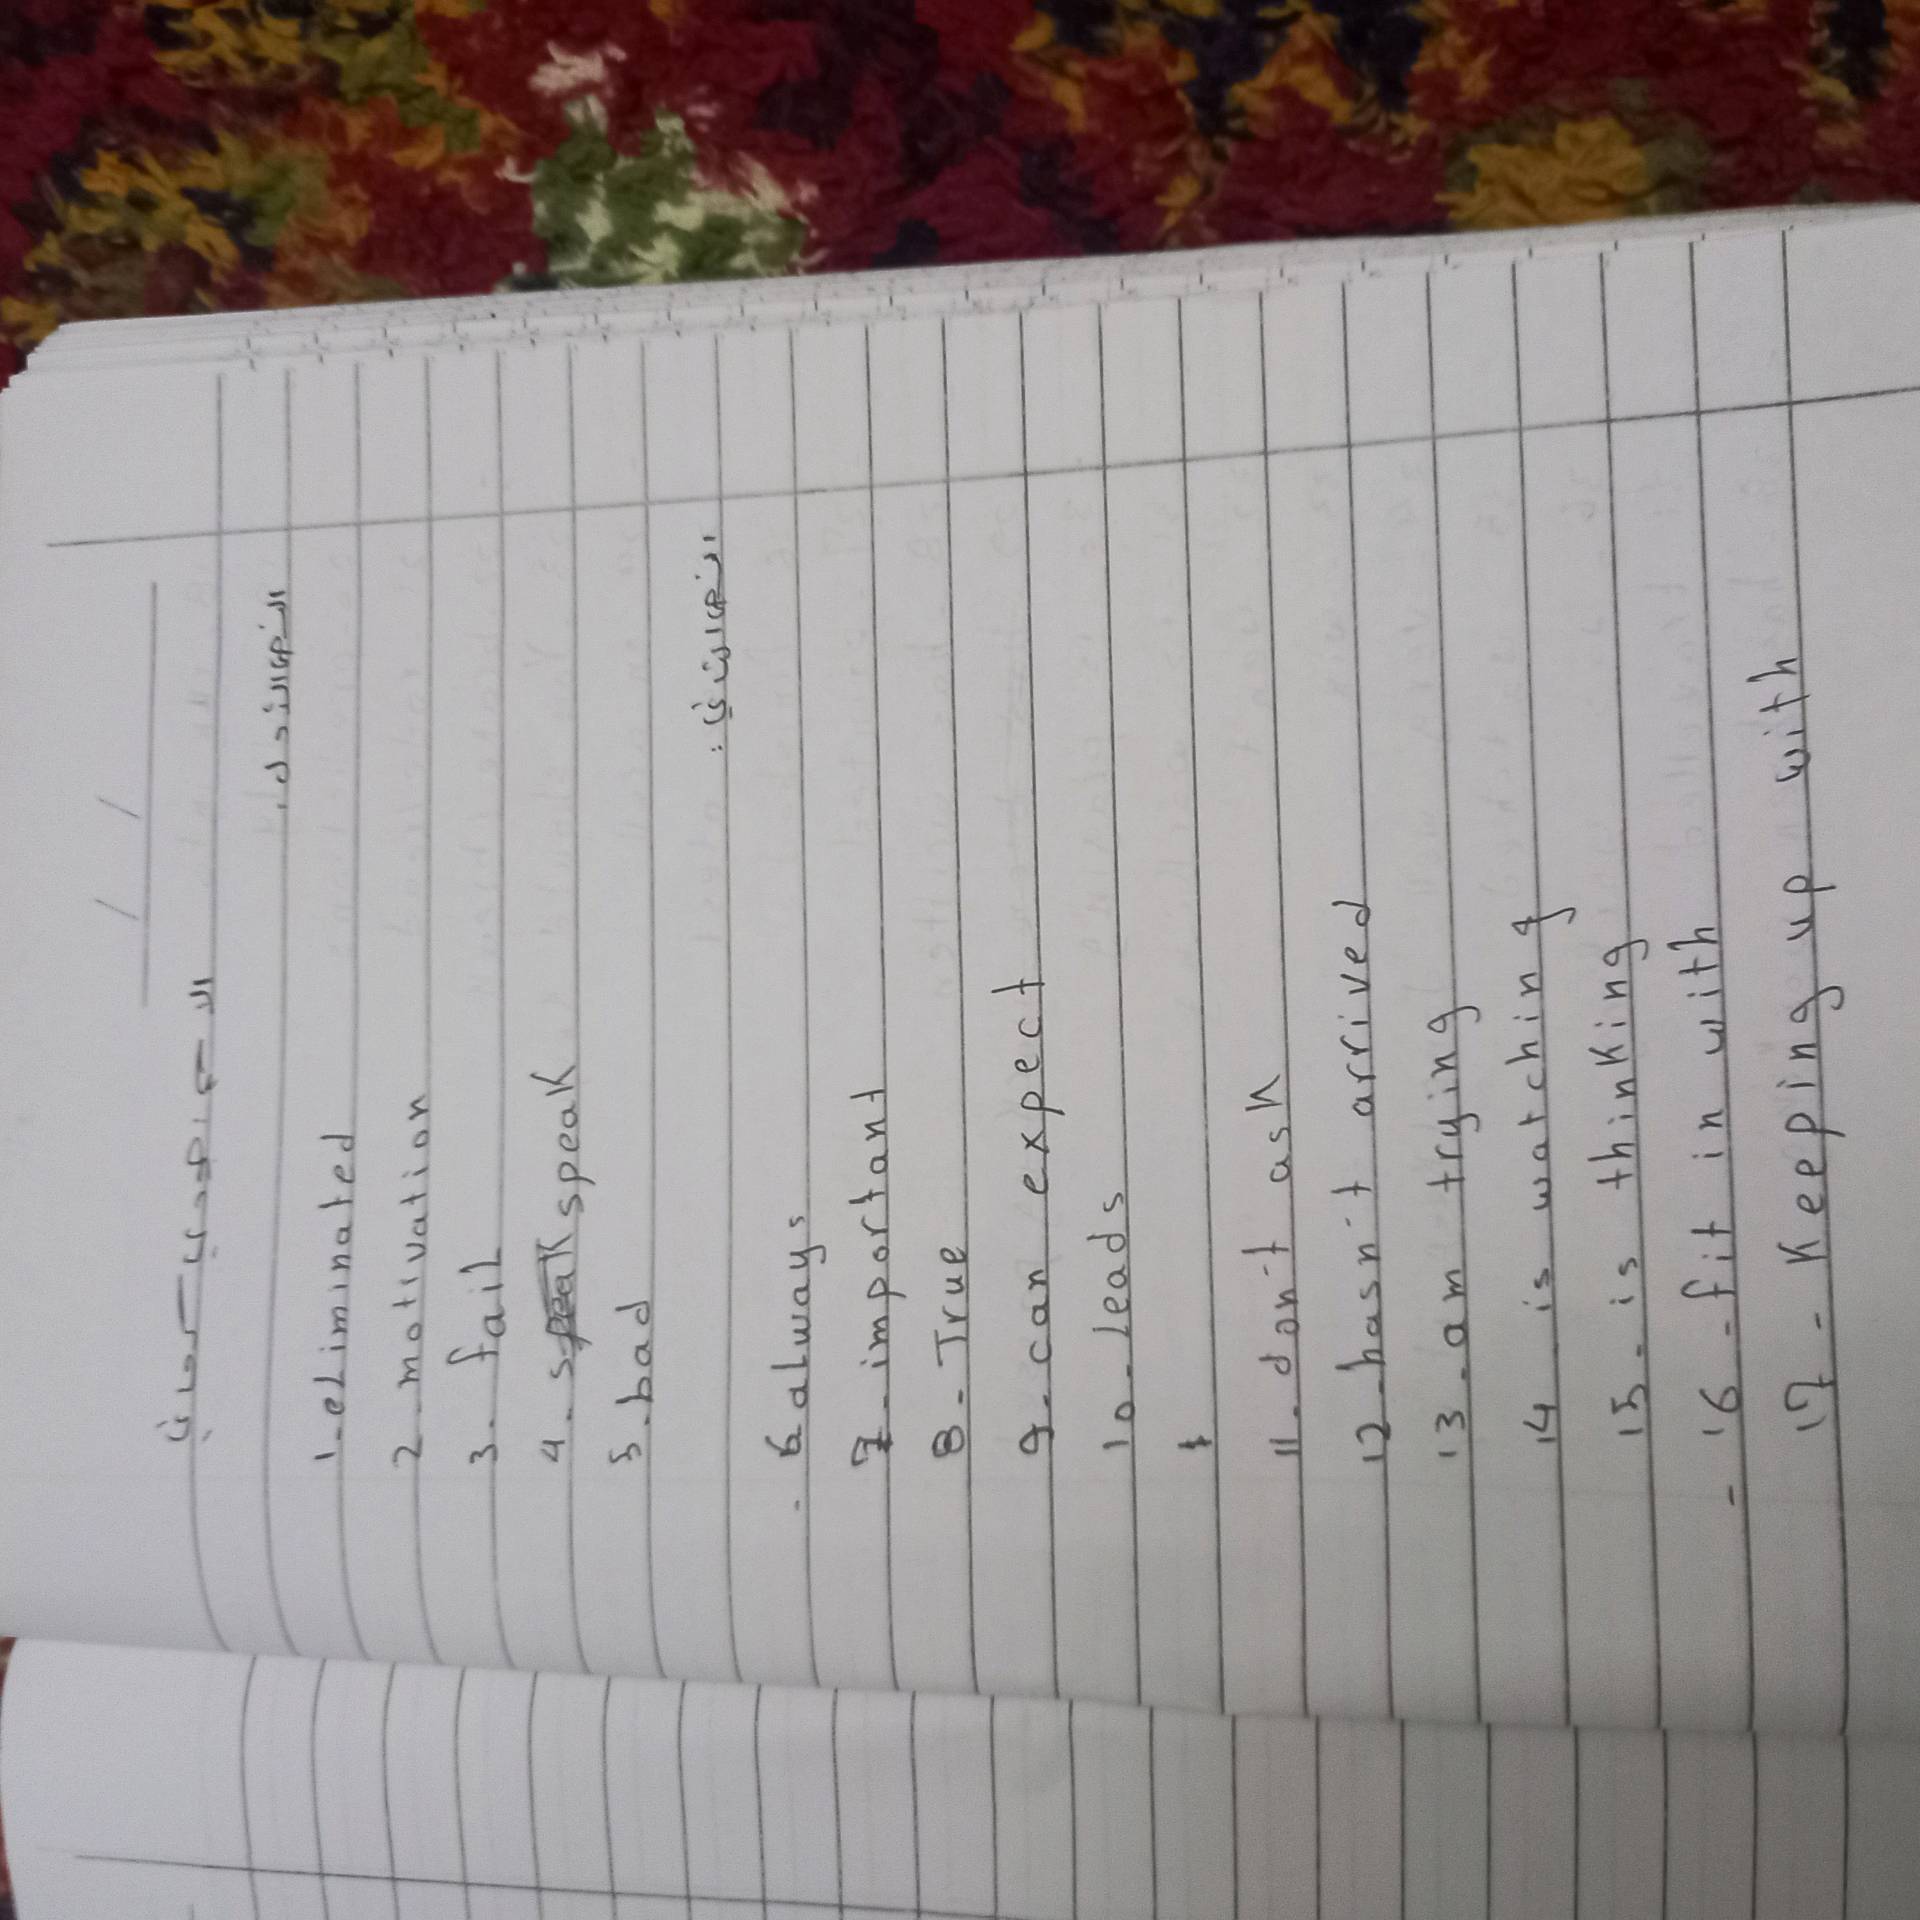 النص الاول:
1-eliminated
2-motivation
3- fail
4- speak
5-bad
النص الثاني:
6-always
7-important
8-True
9-can expect
10-leads
11-don't ask
12-hasn't arrived
13-am trying
14 is watching
15-is thinking
16-fit in with
17-Keeping up with